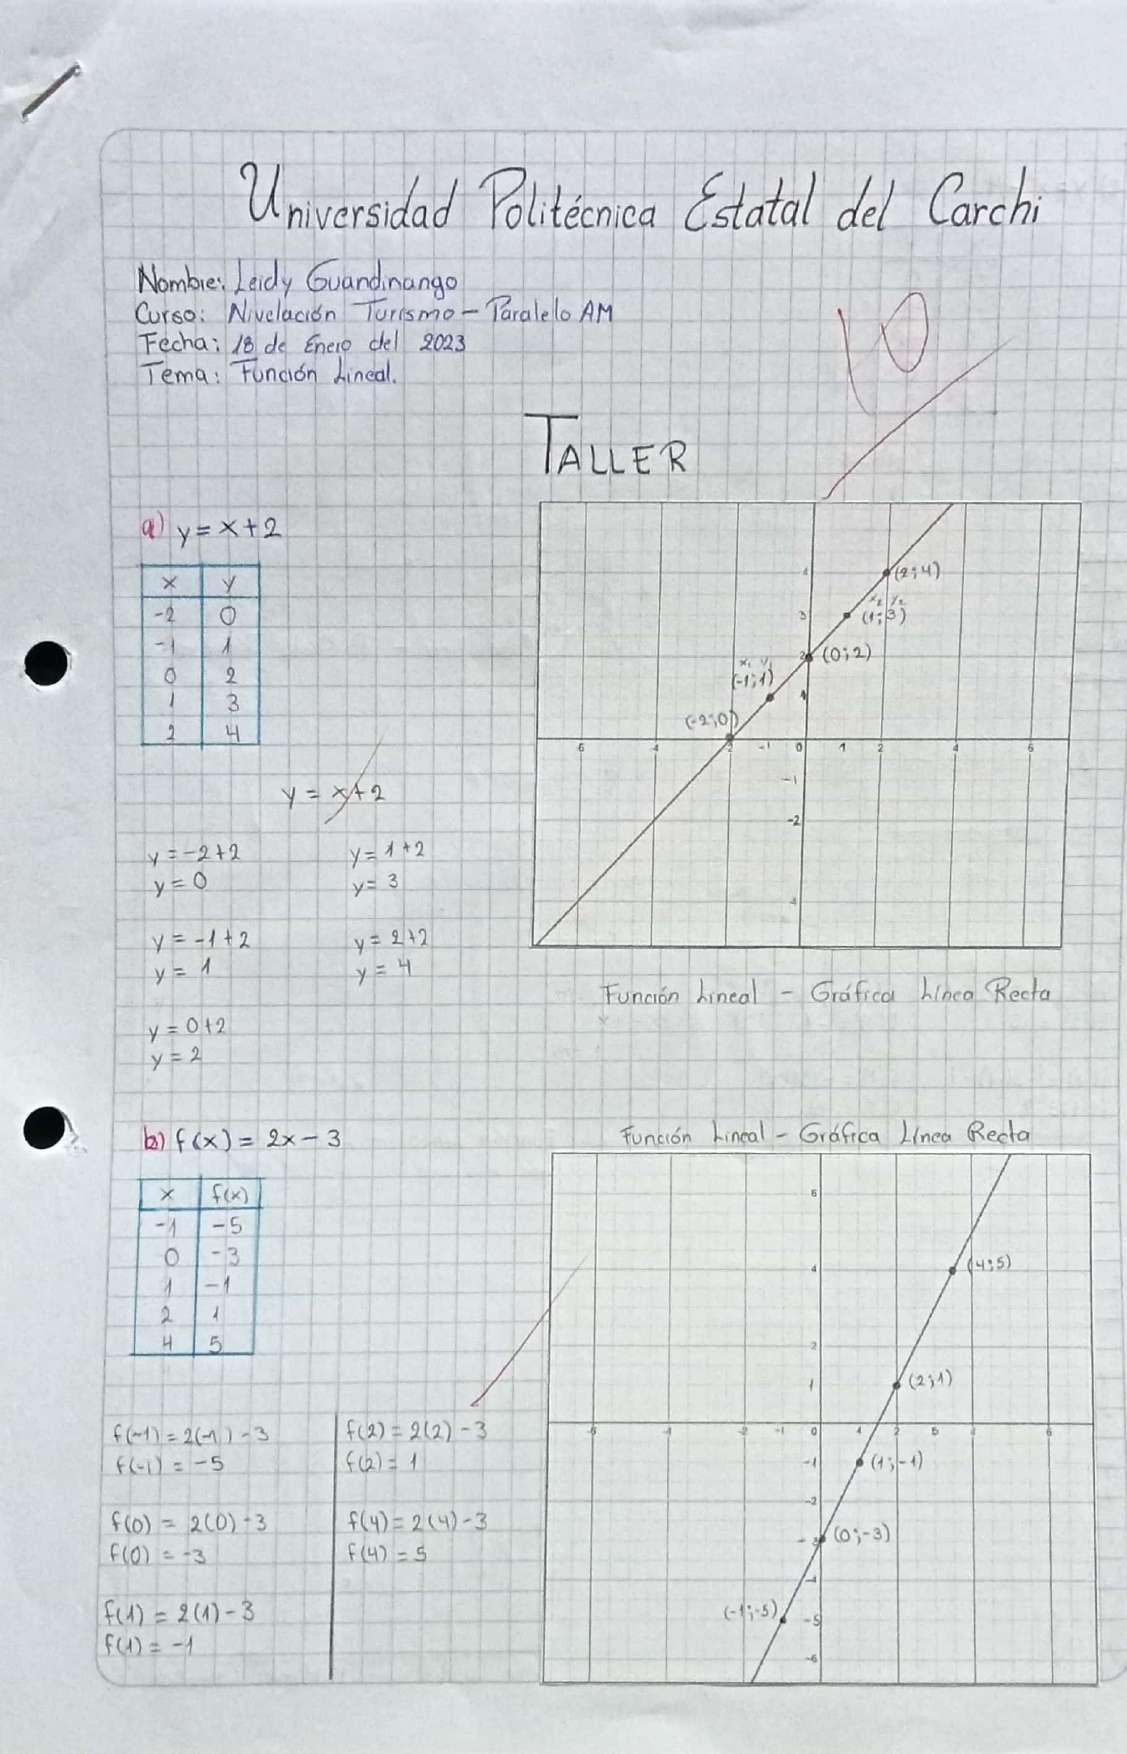 Universidad Politécnica Estatal del Carchi
Nombre: Leidy Guandinango
Curso: Nivelación Turismo - Paralelo AM
Fecha: 18 de Enero del 2023
Tema: Función Lineal.
10
TALLER
a) y = x+2
x y
-2 0
-1 1
0 2
1 3
2 4
y = x+2
y = -2+2
y = 0
y = -1+2
y = 1
y = 0+2
y = 2
y = 1+2
y = 3
y = 2+2
y = 4
4 (2;4)
x₂ y₂
3 (1;3)
2 (0;2)
x₁ y₁
(-1;1)
1
(-2;0)
6 4 2 -1 0 1 2 4 6
-1
-2
4
Función Lineal - Gráfica Línea Recta
b) f(x) = 2x - 3
x f(x)
-1 -5
0 -3
1 -1
2 1
4 5
f(-1) = 2(-1) - 3
f(-1) = -5
f(0) = 2(0) - 3
f(0) = -3
f(1) = 2(1) - 3
f(1) = -1
f(2) = 2(2) - 3
f(2) = 1
f(4) = 2(4) - 3
f(4) = 5
Función Lineal - Gráfica Línea Recta
6
4 (4;5)
2
1 (2;1)
-2 -1 0 1 2 4 6
-1 (1;-1)
-2
-3 (0;-3)
-4
(-1;-5) -5
-6